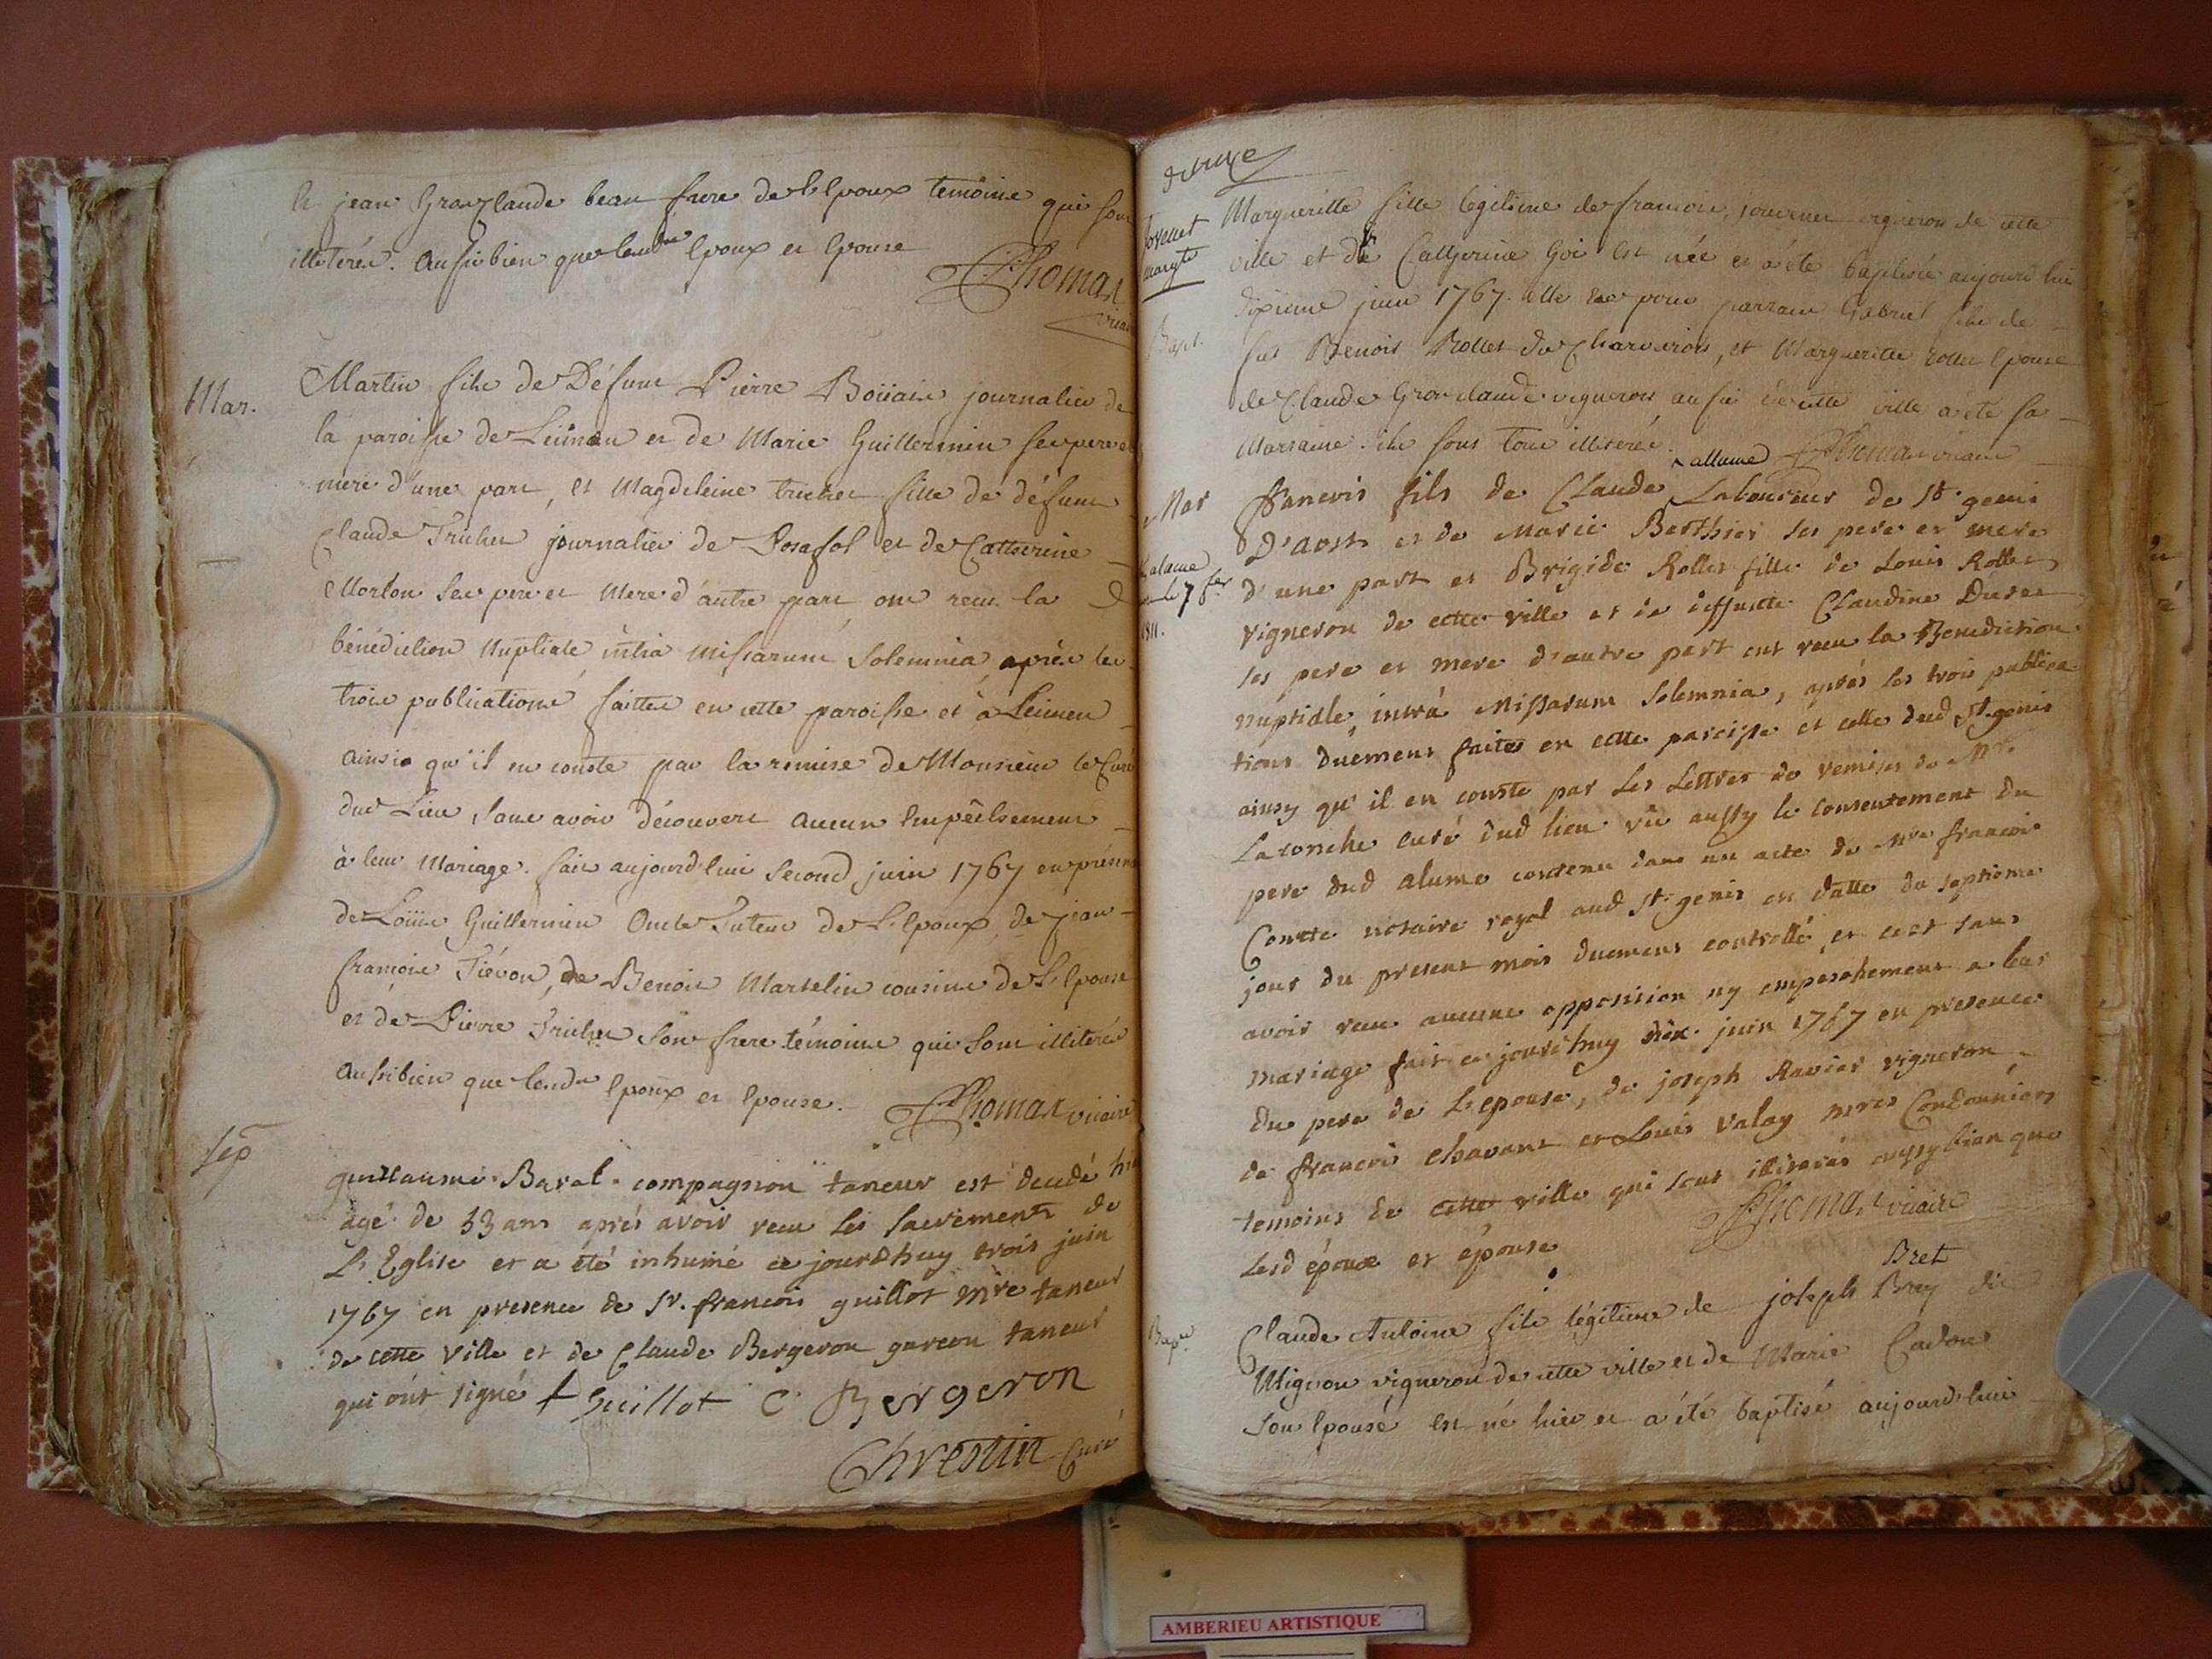 et jean Grosclaude beau frere de l'Epoux temoins qui sont
illiterés. aussibien que lesd. Epoux et Epouse
Thomas
vicaire
Mar.
Martin fils de Défunt Pierre Boüais journalier de
la paroisse de Leiment et de Marie Guillermin ses pere et
mere d'une part, et Magdeleine trichet fille de défunt
Claude Trichet journalier de Posafol et de Catherine
Morlon ses pere et Mere d'autre part ont recu la
bénédiction Nuptiale intra missarum Solemnia, après les
trois publications faittes en cette paroisse et à Leimen
ainsi qu'il en conste par la remise de Monsieur le Curé
dud Lieu, sans avoir découvert aucun Empêchement
à leur Mariage. fait aujourd'hui second juin 1767 en présence
de Loüis Guillermin Oncle Tuteur de l'Epoux, de jean
françois Tiévon, de Benoit Marselin cousins de l'Epouse
et de Pierre Trichet son frere témoins qui sont illiterés
aussibien que lesd. Epoux et Epouse. Thomas vicaire
Sep
guillaume Baral compagnon taneur est decedé hier
agé de 33 ans aprés avoir receu les sacrements de
L'Eglise et a été inhumé ce jourdhuy trois juin
1767 en presence de Sr. françois guillot mre taneur
de cette ville et de Claude Bergeron garcon taneur
qui ont signé f guillot C Bergeron
Chrestin Curé
Jovenet
margte
Bapt.
Marguerite fille legitime de francois, jouvenet vigneron de cette
ville et de Catherine Goi est née et a été baptisée aujourd'hui
dixieme juin 1767. elle a eu pour parrain Gabriel fils de
feu Benoit Rollet de Charvieux, et Marguerite rollet Epouse
de Claude Grosclaude vigneron aussi de cette ville a été sa
Marraine. ils sont tous illiterés. Thomas vicaire
Mar
alame
le 7
1811.
allume
francois fils de Claude Laboureur de St. genis
D'aost et de Marie Berthier ses pere et mere
d'une part et Brigide Rollet fille de Louis Rollet
vigneron de cette ville et de deffunte Claudine Duret
ses pere et mere d'autre part ont receu la Benediction
nuptialle, intrà Missarum Solemnia, aprés les trois publica-
tions duement faites en cette paroisse et celle dud St. genis
ainsy qu'il en conste par les Lettres de remises de Mr.
Laronche curé dud lieu vù aussy le consentement du
pere dud alume contenu dans un acte de Mre francois
Comte notaire royal aud St. genis en datte du septieme
jour du present mois duement controllé, et ce et sans
avoir receu aucune opposition ny empeschement a leur
mariage fait ce jourdhuy dix juin 1767 en presence
du pere de L'epouse, de joseph Ravier vigneron
de francois Chavant et Louis Valay mres Cordonniers
temoins de cette ville qui sont illiterés aussy bien que
Lesd époux et épouse Thomas vicaire
Bapt.
Bret
Claude Antoine fils légitime de joseph Brey dit
Mignon vigneron de cette ville et de Marie Cadon
son Epouse est né hier et a été baptisé aujourd'hui
AMBERIEU ARTISTIQUE